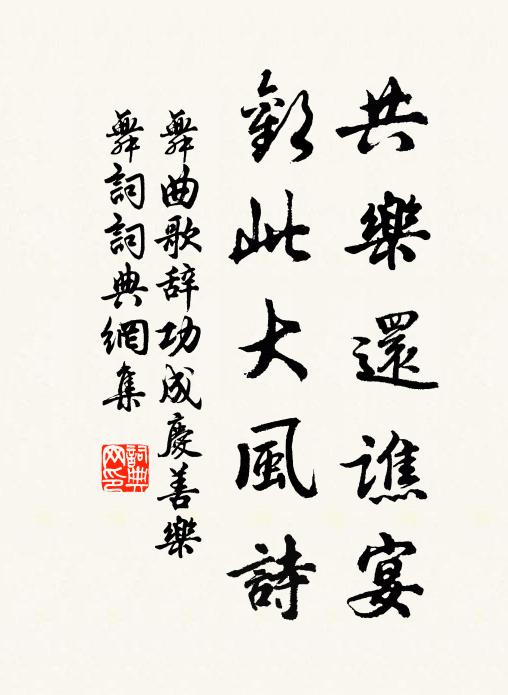 共樂還譙宴
歡此大風詩
舞曲歌辞功成慶善樂
舞詞詞典網集
詞典
网印